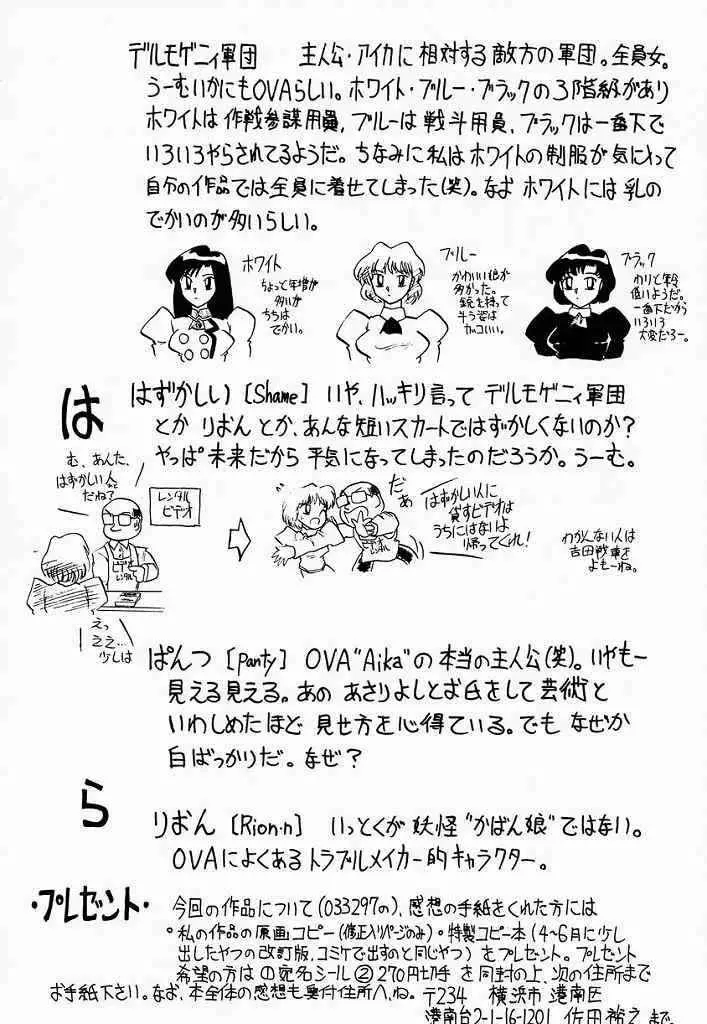 デルモゲニィ軍団　主人公・アイカに相対する敵方の軍団。全員女。
うーむいかにもOVAらしい。ホワイト・ブルー・ブラックの3階級があり
ホワイトは作戦参謀用員，ブルーは戦斗用員，ブラックは一番下で
いろいろやらされてるようだ。ちなみに私はホワイトの制服が気にいって
自分の作品では全員に着せてしまった(笑)。なお ホワイトには乳の
でかいのが多いらしい。
ホワイト
ちょっと年増が
多いが
ちちは
でかい。
ブルー
かわいい娘が
多かった。
銃を持って
斗う姿は
カッコいい。
ブラック
わりと年令
低いようだ。
一番下だから
いろいろ
大変だろー。
は
はずかしい [Shame]　いや、ハッキリ言って デルモゲニィ軍団
とか りおん とか、あんな短いスカートではずかしくないのか？
やっぱ未来だから 平気になってしまったのだろうか。うーむ。
む、あんた、
はずかしい人
だね？
レンタル
ビデオ
ビデオ
レンタル
えっ
ええ…
少しは
だぁ
はずかしい人に
貸すビデオは
うちにはないよ
帰ってくれ！
わかんない人は
吉田戦車を
よもーね。
ぱんつ [Panty]　OVA"Aika"の本当の主人公(笑)。いやもー
見える見える。あの あさりよしとお氏をして芸術と
いわしめたほど 見せ方を心得ている。でも なぜか
白ばっかりだ。なぜ？
ら
りおん [Rion・n]　いっとくが 妖怪"かばん娘"ではない。
OVAによくあるトラブルメイカー的キャラクター。
・プレゼント・
今回の作品について(033297の)、感想の手紙をくれた方には
・私の作品の原画コピー(修正入りページのみ)・特製コピー本(4〜6月に少し
出したやつの改訂版、コミケで出すのと同じやつ)をプレゼント。プレゼント
希望の方は ①宛名シール ②270円切手 を同封の上、次の住所まで
お手紙下さい。なお、本全体の感想も奥付住所へ、ね。〒234　横浜市 港南区
港南台2-1-16-1201 佐田 裕之 まで